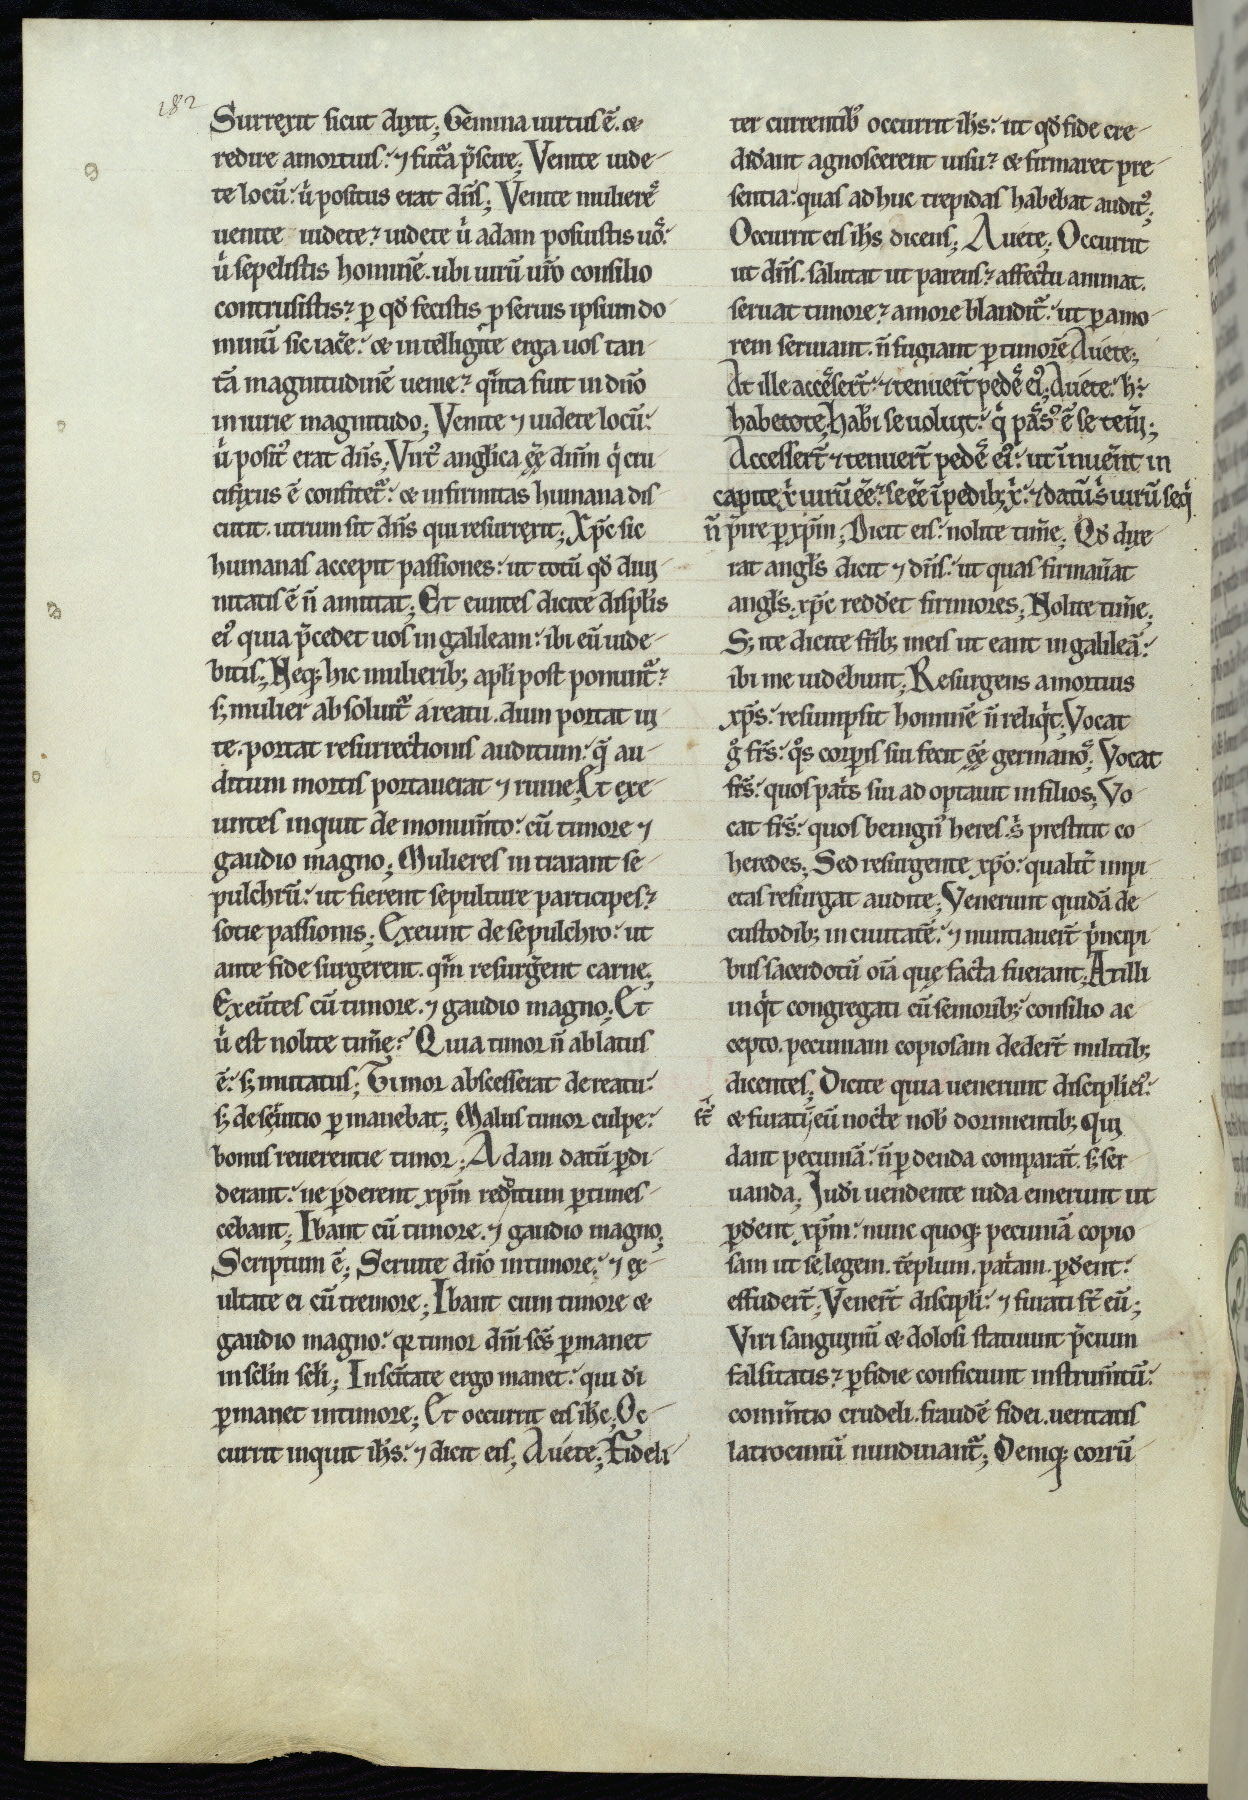 182
Surrexit sicut dixit; Gemina uirtus ē. &
redire a mortuis: ⁊ futͣa p̄scire; Venite uide-
te locū: uͥ positus erat dn̄s; Venite muliereˢ
uenite uidete: uidete uͥ adam posuistis uoˢ:
uͥ sepelistis hominē. ubi uirū ur̄o consilio
contrusistis: ꝑ qd̄ fecistis ꝑ seruis ipsum do-
minū sic iacē: & intelligite erga uos tan-
tā magnitudinē uenie: qͣnta fuit in dn̄o
iniurie magnitudo; Venite ⁊ uidete locū:
uͥ positꝰ erat dn̄s; Virtꝰ anglica ee͞ dn̄m qͥ cru-
cifixus ē confitetᷣ: & infirmitas humana dis-
cutit. utrum sit dn̄s qui resurrexit; Xp̄c sic
humanas accepit passiones: ut totū qd̄ diui-
nitatis ē n̄ amittat; Et euntes dicite discplis
eiꝰ quia p̄cedet uos in galileam: ibi eū uide-
bitis; Neq; hic mulierib; apl̄i post ponuntᷣ:
s; mulier absoluitᷣ a reatu. dum portat ui-
te. portat resurrectionis auditum: qͣ au-
ditum mortis portauerat ⁊ ruine; Et exe-
untes inquit de monum̄to: cū timore ⁊
gaudio magno; Mulieres intrarant se-
pulchrū: ut fierent sepulture participes:
sotie passionis; Exeunt de sepulchro: ut
ante fide surgerent. qͣm resurg̃ent carne;
Exeūtes cū timore. ⁊ gaudio magno; Et
uͥ est nolite tim̃e: Quia timor n̄ ablatus
ē: s; mutatus; Timor abscesserat de reatu:
s; de sēuitio ꝑmanebat; Malus timor culpe:
bonus reuerentie timor; Adam datū ꝑdi-
derant: ne ꝑderent xp̄m redditum ꝑtimes-
cebant; Ibant cū timore. ⁊ gaudio magno;
Scriptum ē; Seruite dn̄o in timore: ⁊ ex-
ultate ei cū tremore; Ibant cum timore &
gaudio magno: qr timor dn̄i sc̄s ꝑmanet
in sclm̄ scl̄i; In sc̄itate ergo manet: qui d̄i
ꝑmanet in timore; Et occurrit eis ih̄c; Oc-
currit inquit ih̄s: ⁊ dicit eis; Auete; Fideli-
ter currentibꝰ occurrit ih̄s: ut qd̄ fide cre-
did̄ant agnoscerent uisu: & firmaret pre-
sentia: quas ad huc trepidas habebat auditꝰ;
Occurrit eis ih̄s dicens; Auete; Occurrit
ut dn̄s. salutat ut parens: affectu animat.
seruat timore: amore blanditᷣ: ut ꝑ amo-
rem seruiant. n̄ fugiant ꝑ timorē Auete;
At ille accēsert̄: ⁊ tenuert̄ pedeˢ eiꝰ; Auete: h̄:
habetote; Hab̄i se uoluit: qͥ pasꝰ ē se teni;
Accessert̄ ⁊ tenuert̄ pedeˢ eiꝰ: ut inuen̄it in
capite xͥ uirū ee͞: se ee͞ ī pedib; xͥ: ⁊ datū sͥ uirū seqͥ
n̄ p̄ire ꝑ xp̄m; Dicit eis: nolite tim̃e; Qd̄ dixe-
rat angl̄s dicit ⁊ dn̄s: ut quas firmau̾at
angl̄s. xp̄c redd̾et firmiores; Nolite tim̃e;
S; ite dicite fr̄ib; meis ut eant in galileā:
ibi me uidebunt; Resurgens a mortuis
xp̄s: resumpsit hominē n̄ reliqͥt; Vocat
gͦ fr̄s: qͦs corꝑis sui fecit ee͞ germanoˢ; Vocat
fr̄s: quos patͥs sui adoptauit in filios; Vo-
cat fr̄s: quos benignꝰ heres. sͥ prestitit co-
heredes; Sed resurgente xp̄o: qualit̄ impi-
etas resurgat audite; Venerunt quidā de
custodib; in ciuitatē: ⁊ nuntiauert̄ pͥncipi-
bus sacerdotū oīa quę facta fuerant; At illi
inqͥt congregati cū seniorib; consilio ac-
cepto. pecuniam copiosam dedert̄ militib;
dicentes; Dicite quia uenerunt discipli eiꝰ:
st̄ & furati; eū nocte nob̄ dormientib; Qui
dant pecuniā: n̄ ꝑdenda comparāt. s; ser-
uanda; Iud̄i uendente iuda emerunt ut
ꝑd̾ent xp̄m: nunc quoq; pecuniā copio-
sam ut se. legem. tēplum. patͥam. ꝑd̾ent:
effudert̄; Venert̄ discipli: ⁊ furati st̄ eū;
Viri sanguinū & dolosi statuunt p̄cium
falsitatis: ꝑfidie conficiunt instrum̄tū:
com̄entio crudeli. fraudē fidei. ueritatis
latrociniū nundinantᷣ; Deniq; corrū-